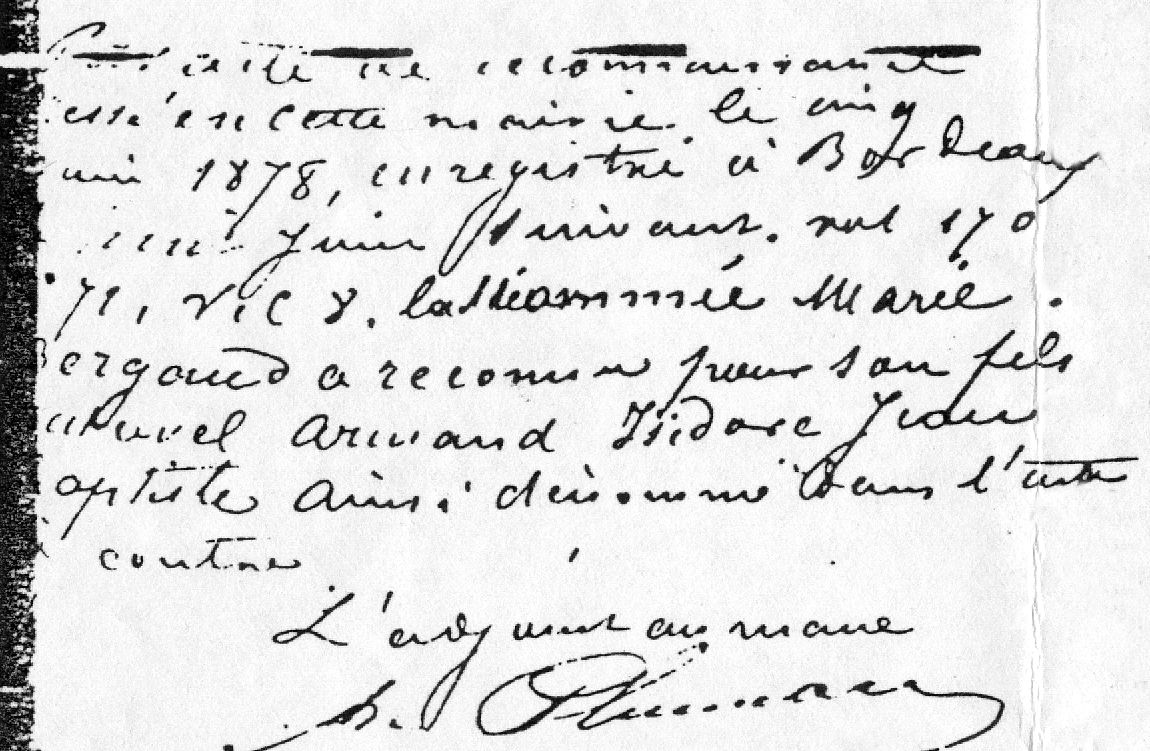 acte de reconnaissance
en cette mairie le cinq
1878, enregistré à Bordeaux
Juin suivant. vol 170
71, r. c 8. la dénommée Marie
Bergaud a reconnu pour son fils
naturel Armand Isidore Jean
aptiste ainsi dénommé dans l'acte
contre
L'adjoint au maire